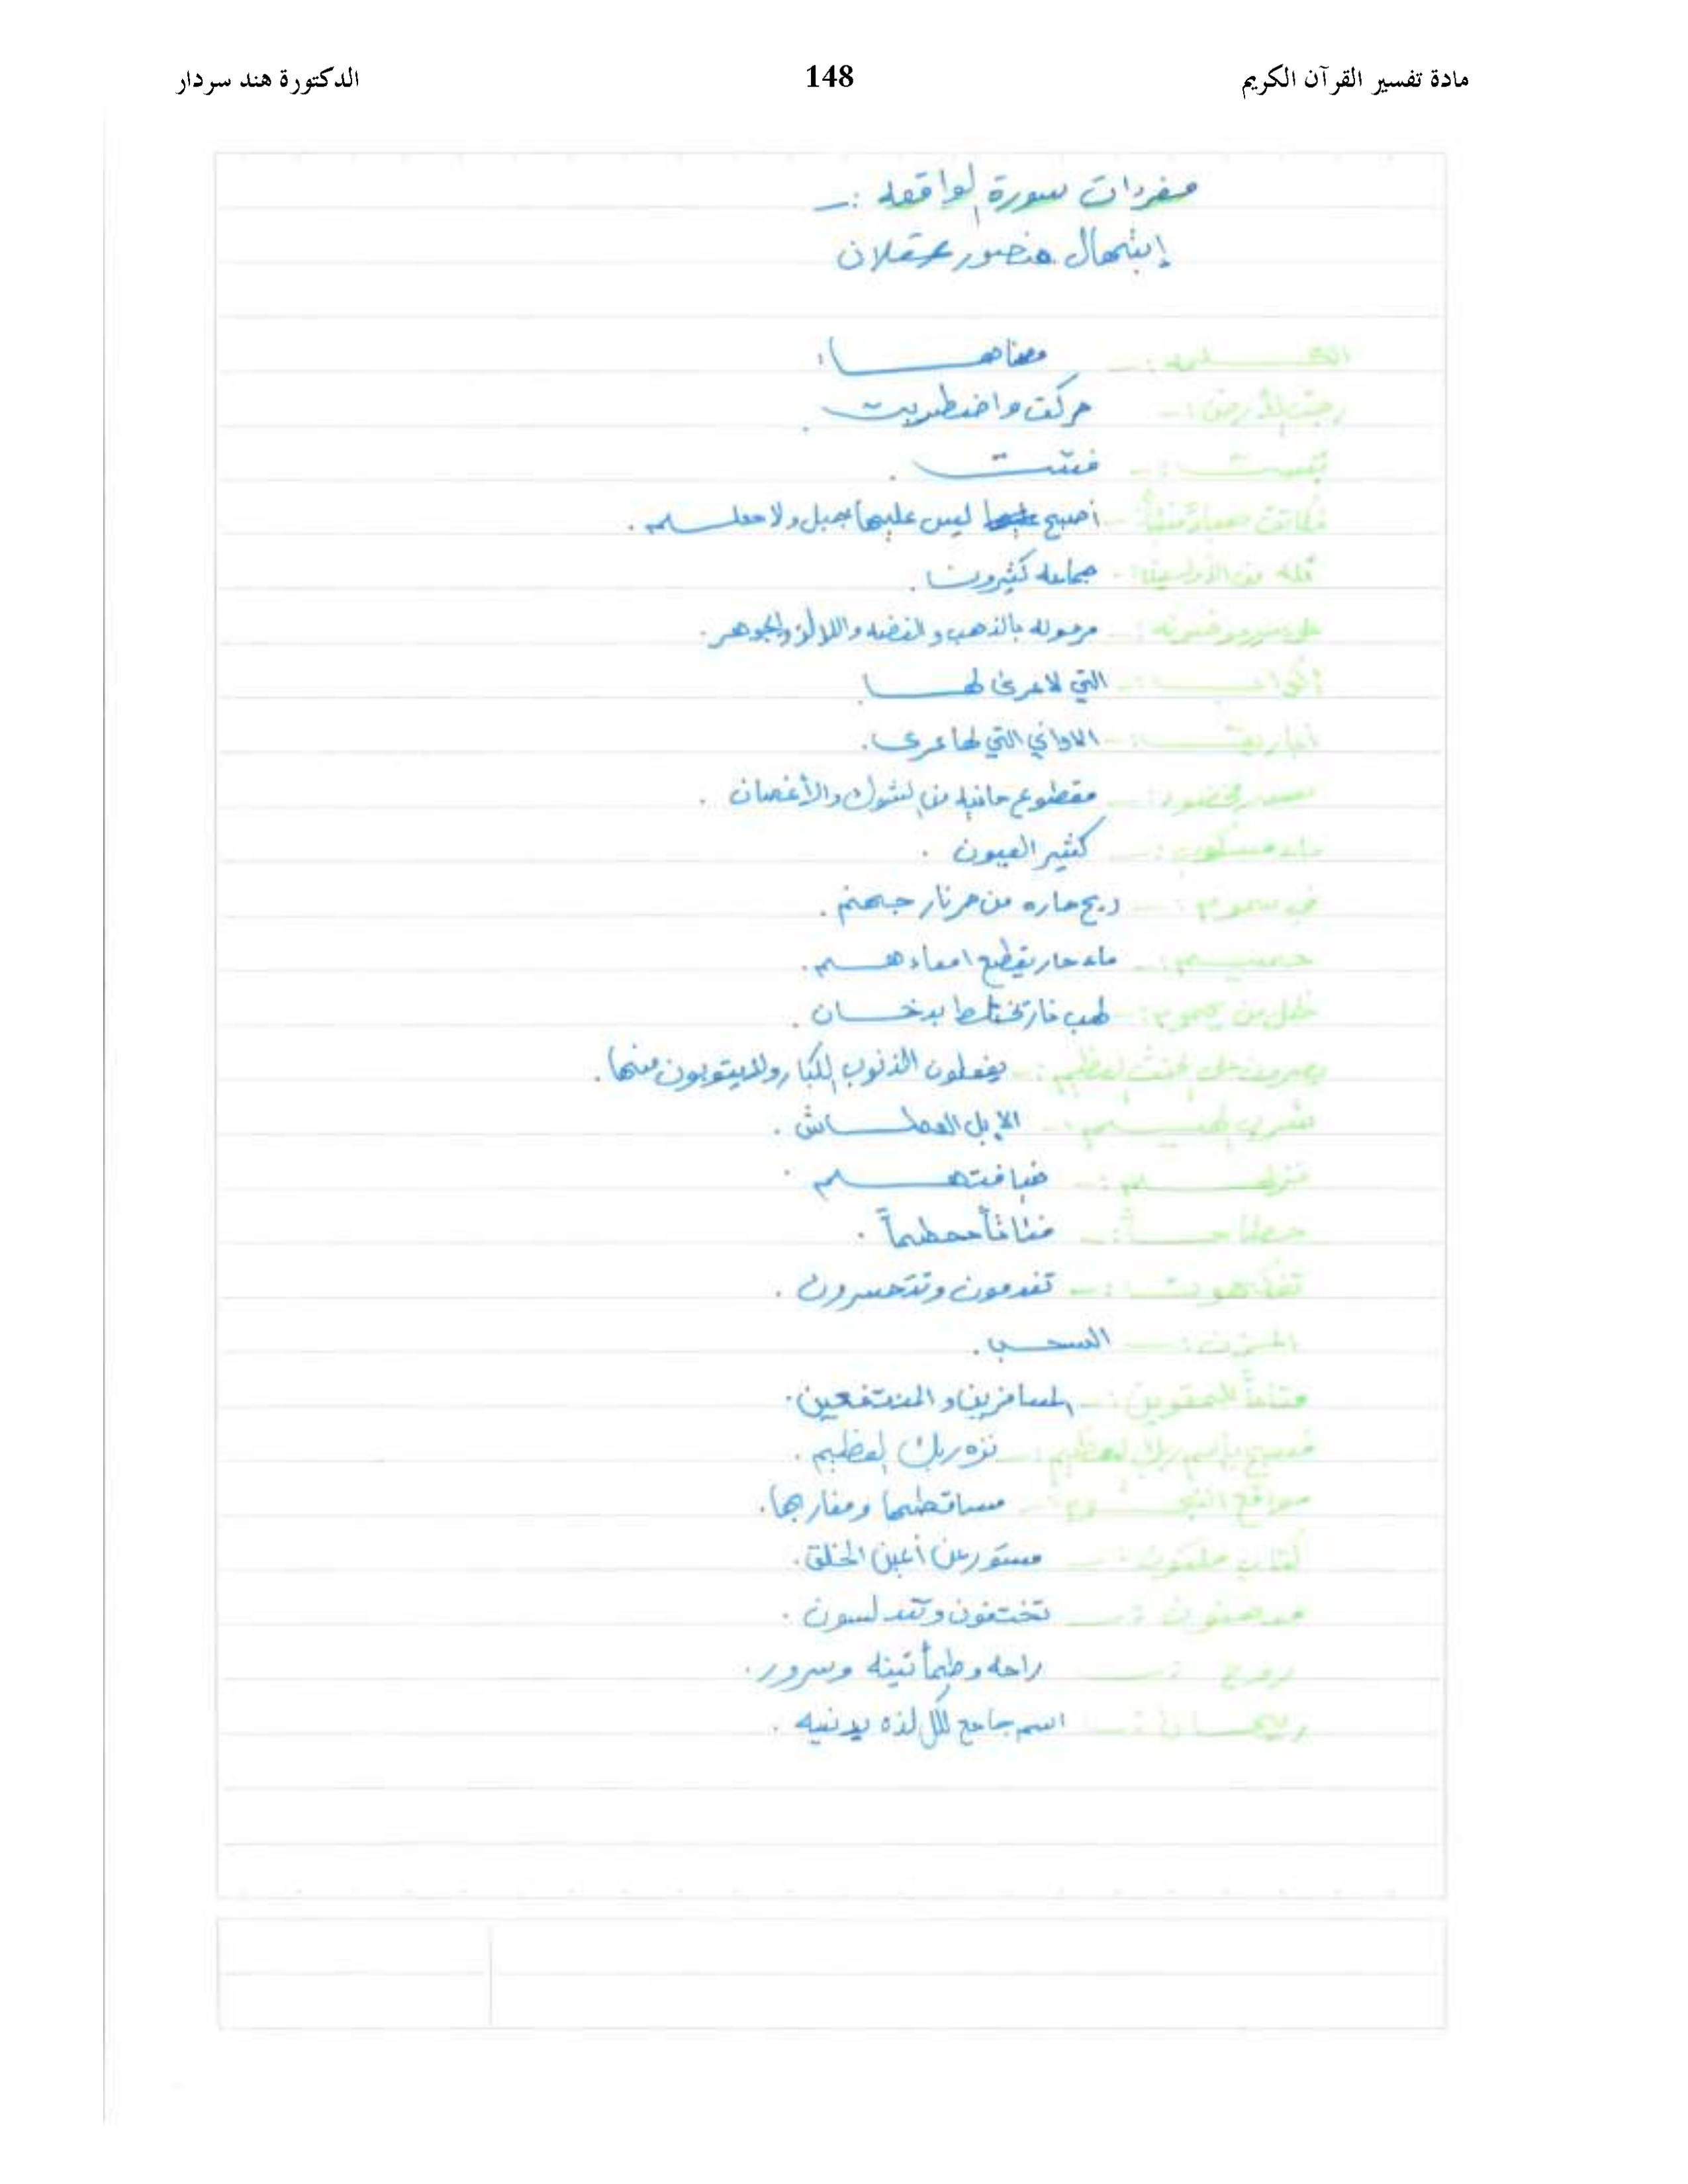 مادة تفسير القرآن الكريم 148 الدكتورة هند سردار
مفردات سورة الواقعه :-
إبتهال منصور عقلان
الكلمه :- معناها :
رجت الأرض :- حركت واضطربت .
بست :- فتتت .
فكانت هباءً منبثاً :- أصبح ليس عليها جبل ولا معلم .
ثله من الأولين :- جماعه كثيرون .
على سرر موضونه :- مرموله بالذهب والفضه واللالئ والجوهر .
أكواب :- التي لا عرى لها .
أباريق :- الاواني التي لها عرى .
سدر مخضود :- مقطوع مافيه من الشوك والأغصان .
ماء مسكوب :- كثير العيون .
في سموم :- ريح حاره من حر نار جهنم .
حميم :- ماء حار يقطع امعاءهم .
ظل من يحموم :- لهب نار تختلط بدخان .
يصرون على الحنث العظيم :- يفعلون الذنوب الكبار ولا يتوبون منها .
شرب الهيم :- الإبل العطاش .
نزلهم :- ضيافتهم .
حطاماً :- فتاتاً محطماً .
تفكهون :- تندمون وتتحسرون .
المزن :- السحب .
متاعاً للمقوين :- المسافرين والمنتفعين .
فسبح باسم ربك العظيم :- نزه ربك العظيم .
مواقع النجوم :- مساقطها ومغاربها .
كتاب مكنون :- مستور عن أعين الخلق .
مدهنون :- تختفون وتدلسون .
روح :- راحه وطمأنينه وسرور .
ريحان :- اسم جامع لكل لذه بدنيه .